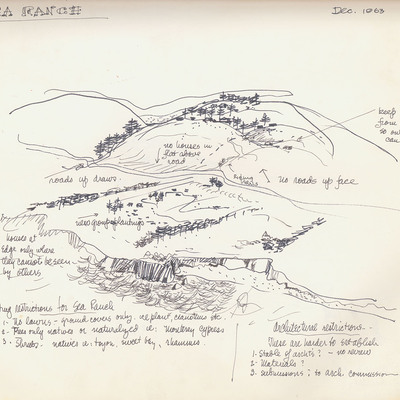 EA RANCH
Dec. 1963
keep
from
so ou
can
no houses in
above
road
roads up draws.
riding
trails
No roads up face
mass groups of plantings
houses at
edge only where
they cannot be seen
by others
ting restrictions for Sea Ranch
1 - No lawns - ground covers only ie, plant, ceanothus etc.
2 - Trees only natives or naturalized ie: monterey cypress
3. Shrubs - natives ie: toyon, sweet bay, rhamnus.
architectural restrictions -
These are harder to establish
1 - Stable of archts? - no review
2 - Materials?
3. submissions: to arch. commission